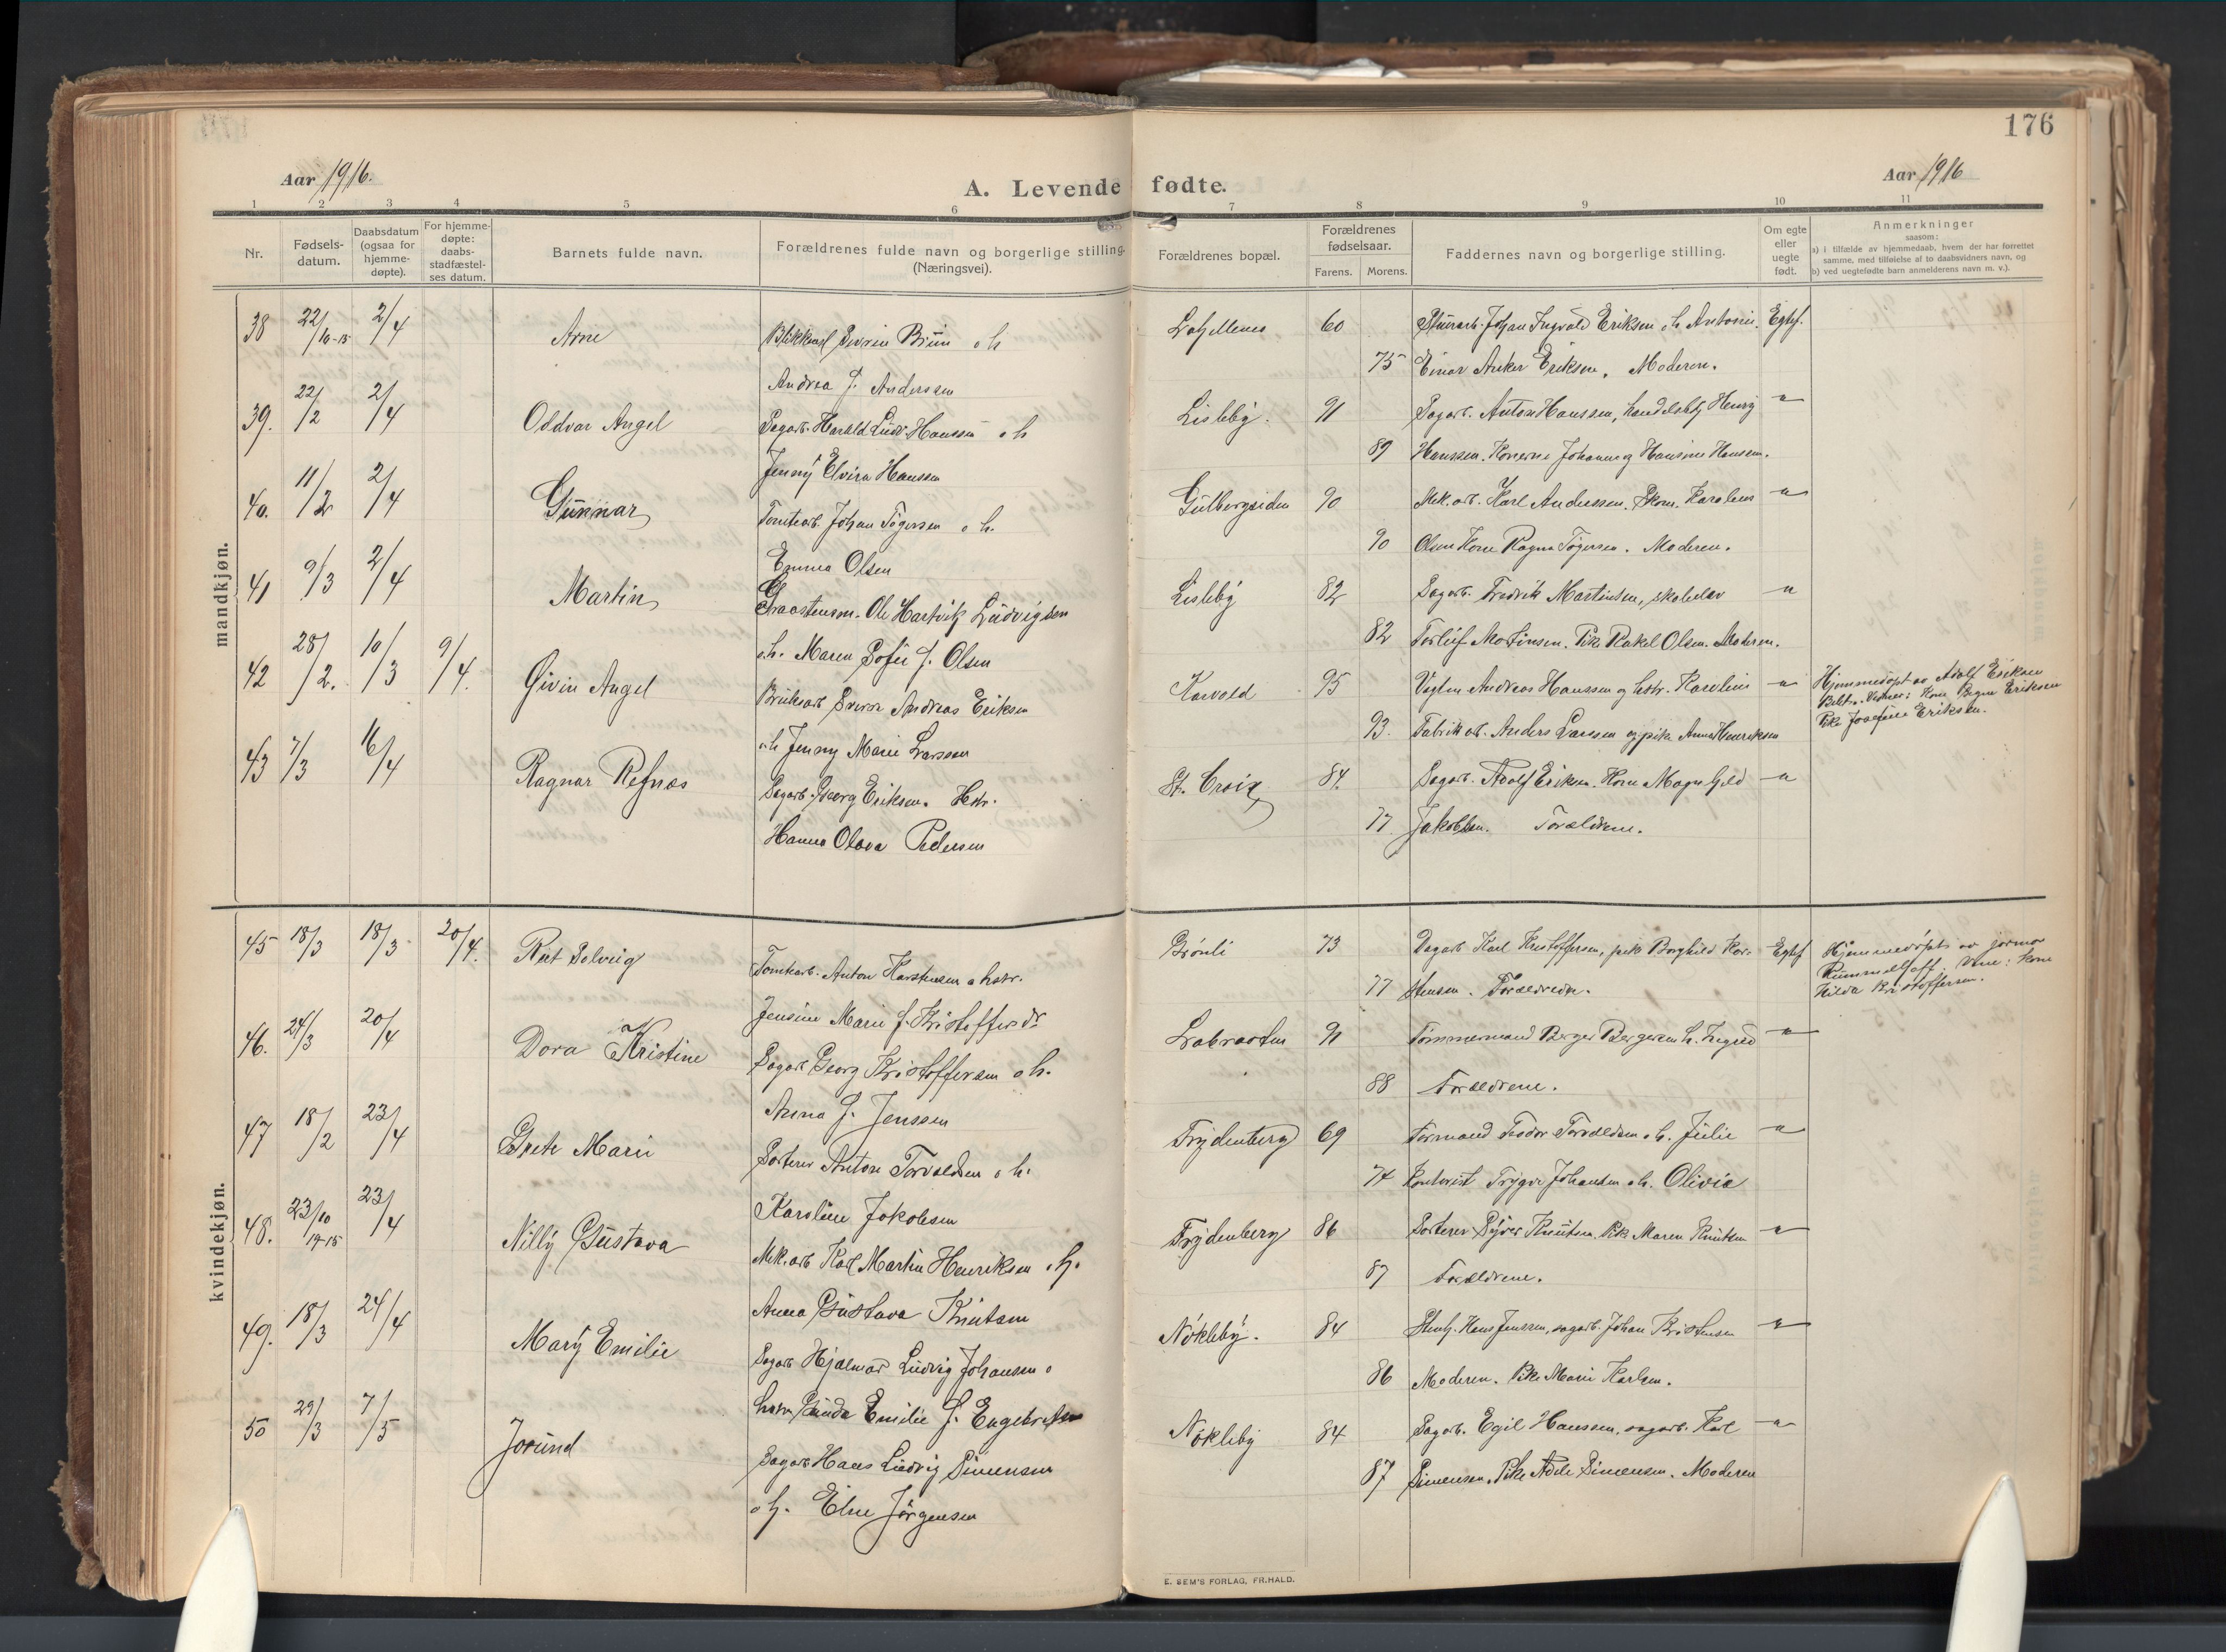 176
Aar 1916.
A. Levende fødte.
Aar 1916
1 2 3 4 5 6 7 8 9 10 11
Nr.
Fødsels-
datum.
Daabsdatum
(ogsaa for
hjemme-
døpte).
For hjemme-
døpte:
daabs-
stadfæstel-
ses datum.
Barnets fulde navn.
Forældrenes fulde navn og borgerlige stilling
(Næringsvei).
Forældrenes bopæl.
Forældrenes
fødselsaar.
Farens. Morens.
Faddernes navn og borgerlige stilling.
Om egte
eller
uegte
født.
Anmerkninger
saasom:
a) i tilfælde av hjemmedaab, hvem der har forrettet
samme, med tilføielse af to daabsvidners navn, og
b) ved uegtefødte barn anmelderens navn m. v.).
mandkjøn.
38 22/10-15 2/4 Arne
60 Johan Ingvald Eriksen Egtef.
Andrea f. Anderssen
75 Einar Anker Eriksen. Moderen.
39. 22/2 2/4 Oddvar Angel
Sagarb. Harald Ludv. Hanssen o h
Lisleby. 91 Sagarb. Anton Hanssen, Henry "
Jenny Elvira Hanssen
89 Hanssen. Konerne Johanne og Hansine Hansen.
40. 11/2 2/4 Gunnar
Tomtearb. Johan Tøgersen o h.
Gulbergsiden 90 Mek. arb. Karl Anderssen. "
Emma Olsen
90 Olsen Kone Ragna Tøgersen. Moderen.
41 9/3 2/4 Martin
Ole Hartvik Ludvigsen
Lisleby 82 Sagarb. Fredrik Martinsen, "
o h. Maren Sofie f. Olsen
82 Pike Rakel Olsen. Moderen.
42 28/2. 10/3 9/4. Øivin Angel
Bruksarb Sverre Andreas Eriksen
95 Andreas Hanssen og hstr. Karoline "
Hjemmedøpt av Adolf Eriksen
Kone Eriksen
Pike Josefine Eriksen.
o h Jenny Marie Larssen
93. Fabrikarb. Anders Larssen og pike Anna Henriksen
43 7/3 16/4 Ragnar Refnæs
Sagarb. Georg Eriksen. Hstr.
St. Croix 84. Sagarb. Adolf Eriksen. Kone "
Hanna Olava Pedersen
77. Jakobsen. Forældrene.
kvindekjøn.
45 18/3 18/3 20/4. Rut Solveig
Tomtearb. Anton Karstensen o hstr.
Brønli 73 Sagarb Karl Kristoffersen, pike Borghild Kar- Egtef
Hjemmedøpt av jormor
Vidne: Kone
Hilda Kristoffersen.
Jensine Marie f. Kristoffersdr
77 stensen. Forældrene.
46. 24/3 20/4 Dora Kristine
Sagarb Georg Kristoffersen o h.
Labraaten 91 Tømmermand Berger Bergersen h. Ingrid "
Anna f. Jenssen
88 Forældrene.
47 18/2 23/4 Grete Marie
Sorterer Anton Torvaldsen o h.
Frydenberg 69 Formand Teodor Torvaldsen o h. Julie "
Karoline Jakobsen
74 Kontorist Trygve Johansen o h. Olivia
48. 23/10 19-15 23/4 Nilly Gustava
Mek. arb Karl Martin Henriksen o h.
Frydenberg 86 Sorterer Syver Knutsen. Pike Maren Knutsen "
Anna Gustava Knutsen
87 Forældrene.
49. 18/3 24/4 Mary Emilie
Sagarb Hjalmar Ludvig Johansen o
Nøkleby. 84 Stenh. Hans Jenssen, sagarb. Johan Kristensen "
hstr. Gunda Emilie f. Engebretsen
86 Moderen. Pike Marie Karlsen.
50 29/3 7/5 Jorund
Sagarb Hans Ludvig Simensen
Nøkleby 84 Sagarb. Egil Hanssen, sagarb. Karl "
o h. Eline Jørgensen
87 Simensen. Pike Adele Simensen. Moderen
E. SEM'S FORLAG, FR.HALD.